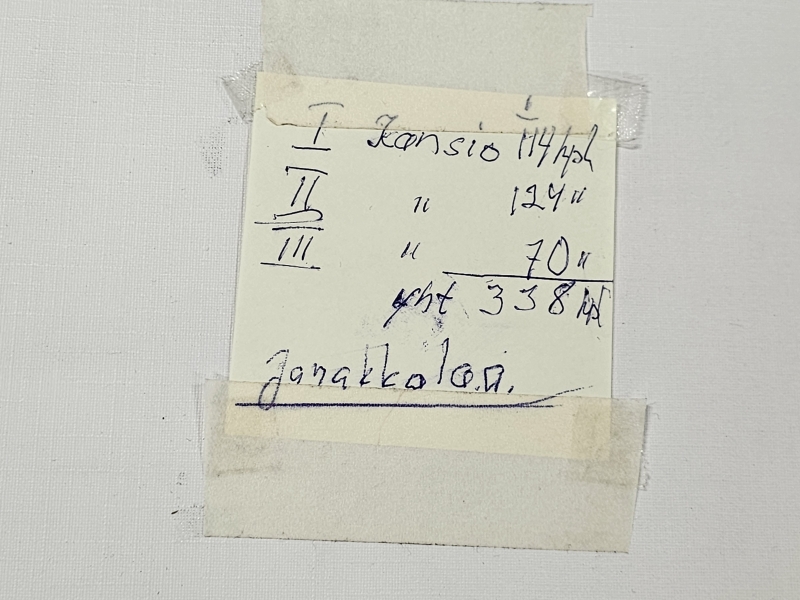 I Kansio 144 kpl
II " 124 "
III " 70 "
yht 338 kpl